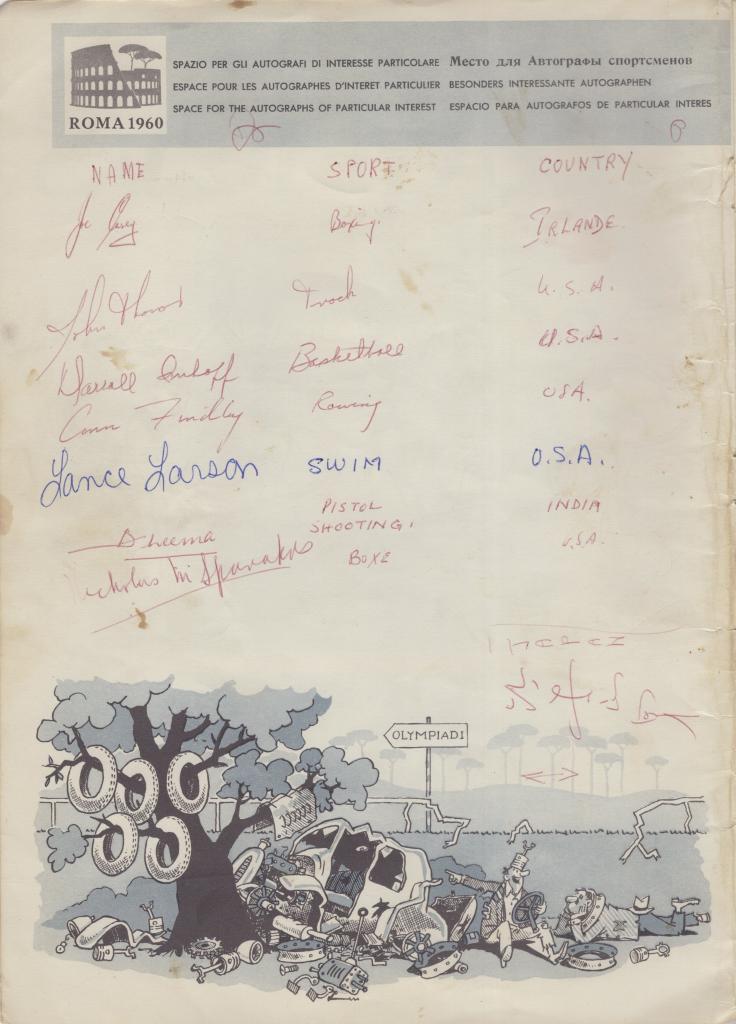 SPAZIO PER GLI AUTOGRAFI DI INTERESSE PARTICOLARE Место для Автографы спортсменов
ESPACE POUR LES AUTOGRAPHES D'INTERET PARTICULIER BESONDERS INTERESSANTE AUTOGRAPHEN
SPACE FOR THE AUTOGRAPHS OF PARTICULAR INTEREST ESPACIO PARA AUTOGRAFOS DE PARTICULAR INTERES
ROMA 1960
NAME SPORT COUNTRY
Joe Casey Boxing. IRLANDE
John Thomas Track U.S.A.
Darrall Imhoff Basketball U.S.A.
Conn Findlay Rowing USA.
Lance Larson SWIM U.S.A.
Bheema PISTOL SHOOTING. INDIA
Nicholas M Spanakos BOXE U.S.A.
OLYMPIADI